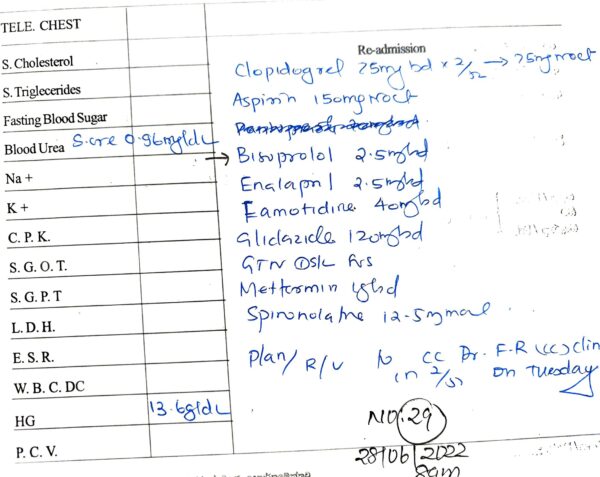 TELE. CHEST
Re-admission
S. Cholesterol
Clopidogrel 75mg bd x 2/52 → 75mg noct
S. Triglecerides
Aspirin 150mg noct
Fasting Blood Sugar
Blood Urea S.cre 0.96mg/dL
→ Bisoprolol 2.5mg bd
Na +
Enalapril 2.5mg bd
K +
Famotidine 40mg bd
C. P. K.
Gliclazide 120mg bd
S. G. O. T.
GTN ① S/L
S. G. P. T
Metformin 1g bd
L. D. H.
Spironolactone 12.5mg
E. S. R.
Plan/ R/V to CC Dr. F.R (cc) clin
in 2/52 on Tuesday
W. B. C. DC
HG 13.6g/dL
NO: 29
P. C. V.
28/06/2022
8am